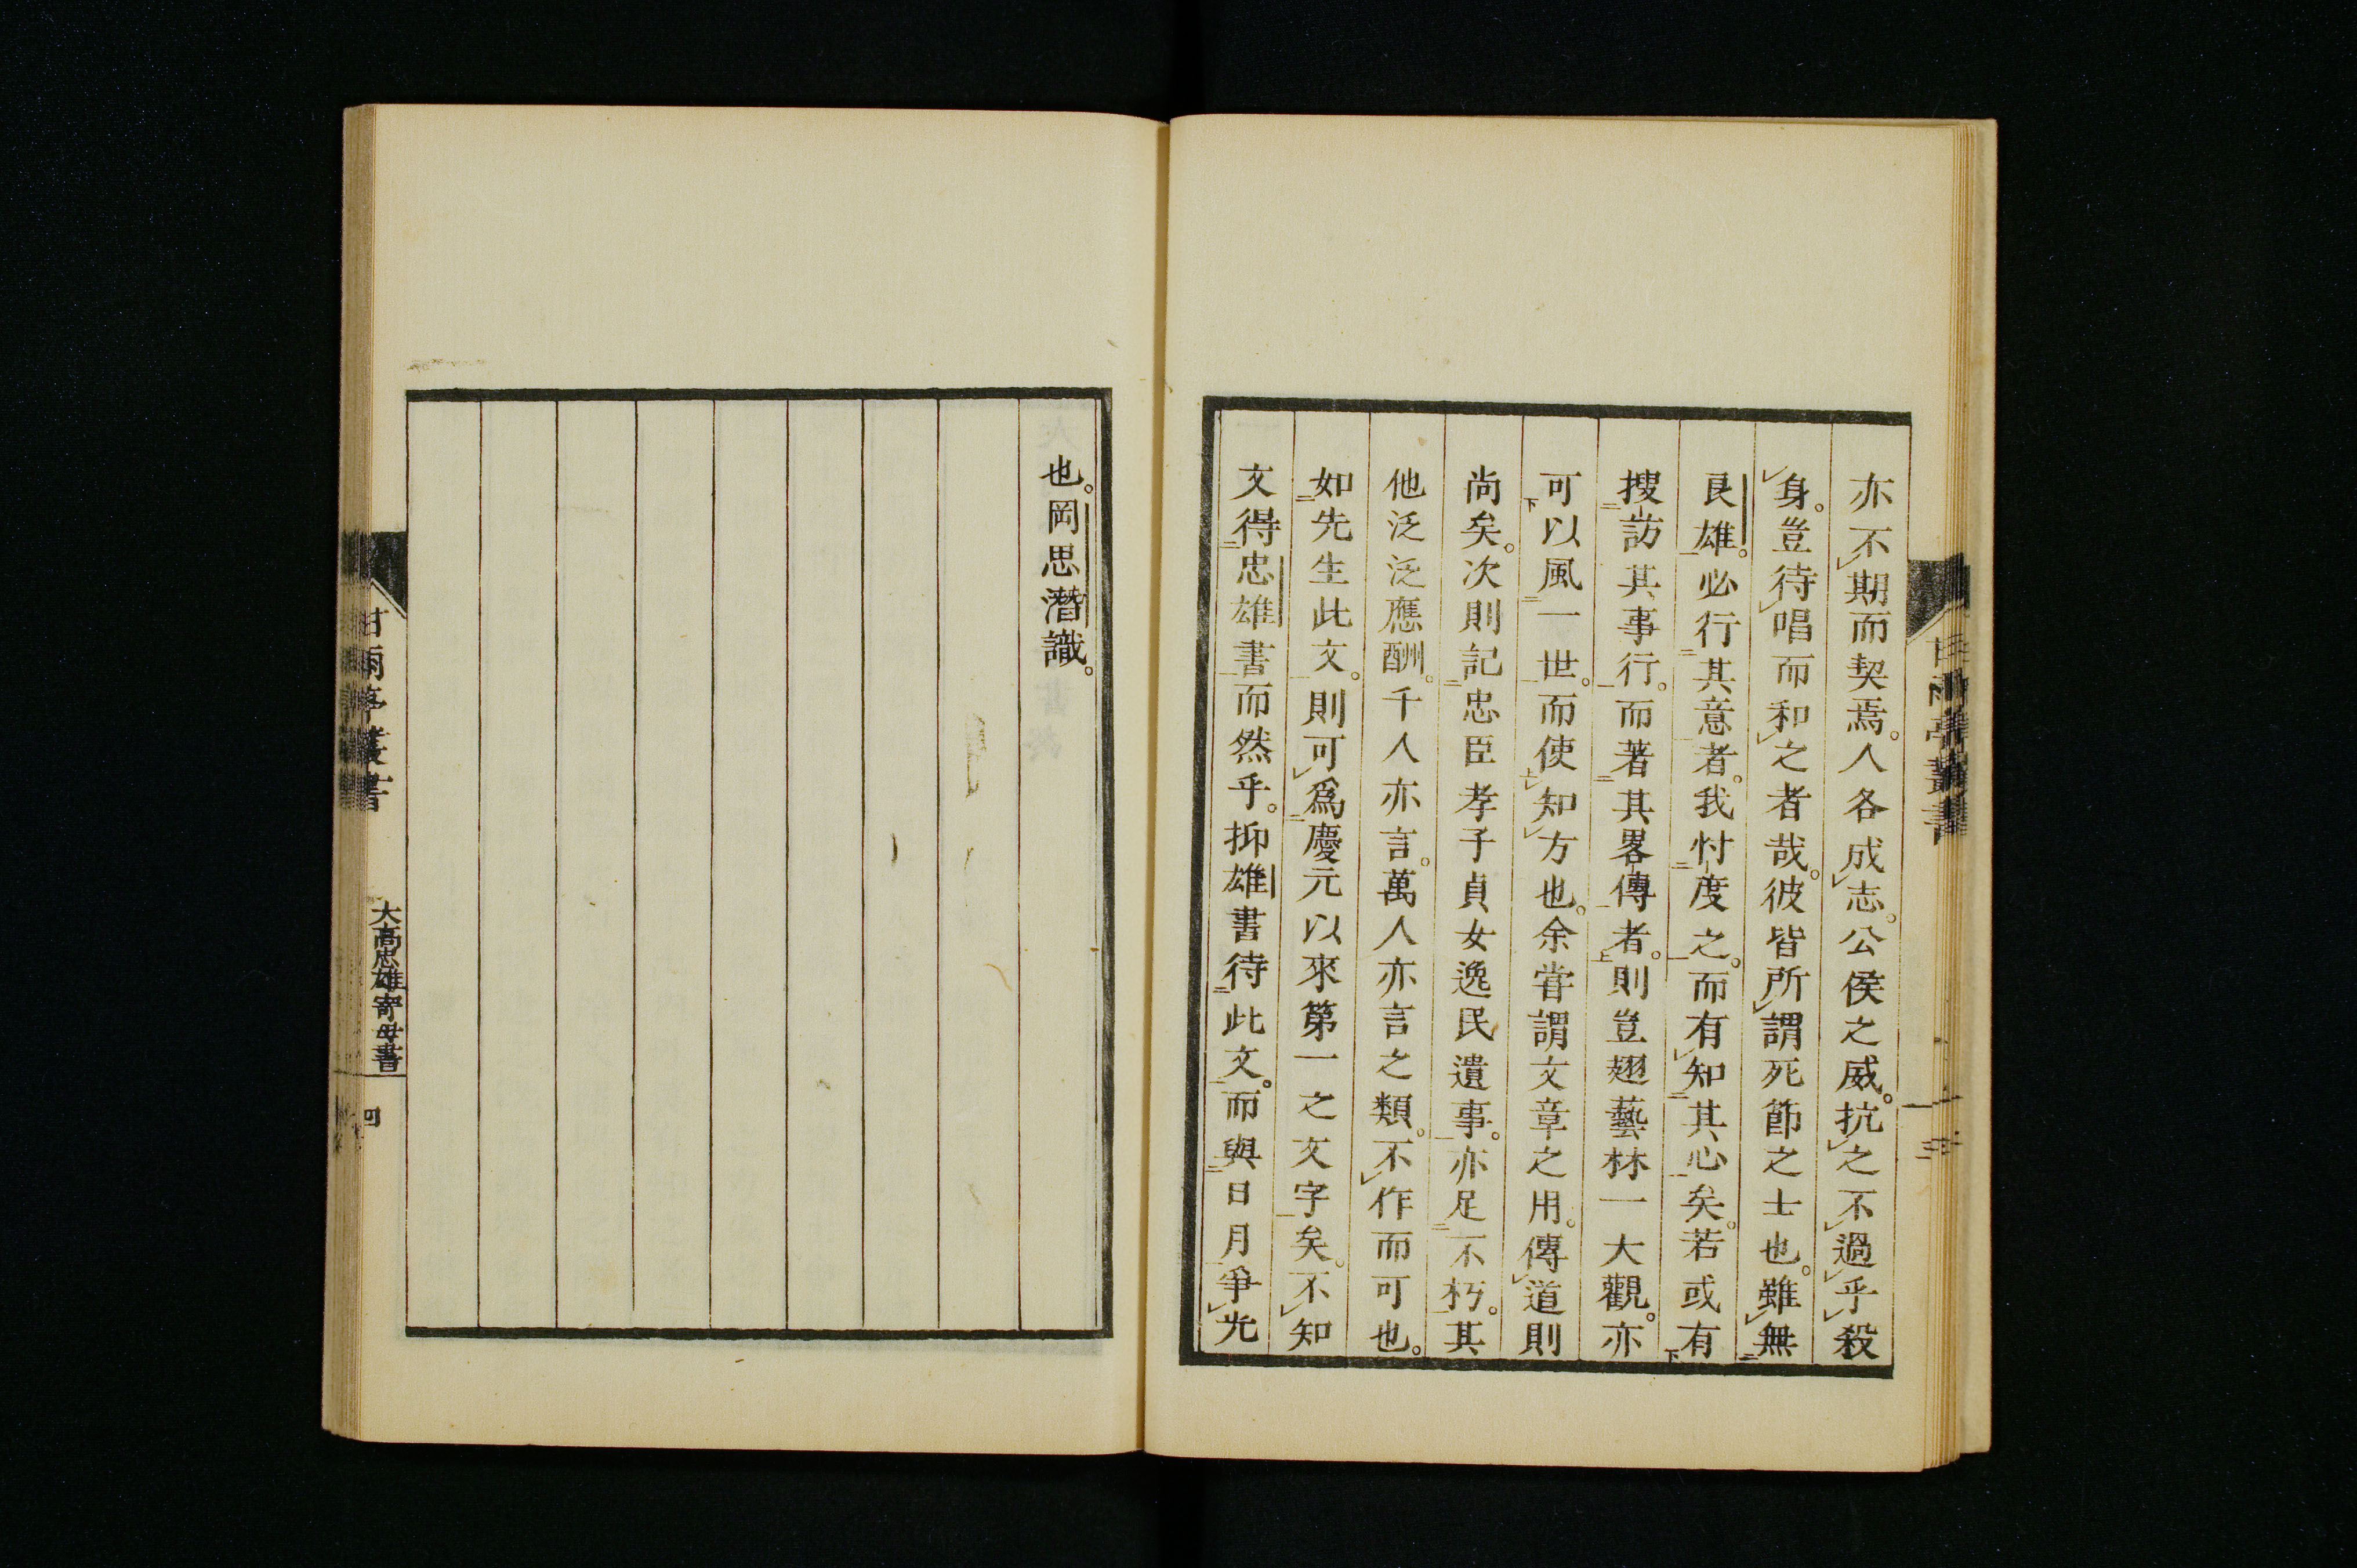 亦不期而契焉。人各成志。公侯之威。抗之不過乎殺
身。豈待唱而和之者哉。彼皆所謂死節之士也。雖無
良雄。必行其意者。我忖度之。而有知其心矣。若或有
搜訪其事行。而著其畧傳者。則豈翅藝林一大觀。亦
可以風一世。而使知方也。余甞謂文章之用。傳道則
尚矣。次則記忠臣孝子貞女逸民遺事。亦足不朽。其
他泛泛應酬。千人亦言。萬人亦言之類。不作而可也。
如先生此文。則可爲慶元以來第一之文字矣。不知
文得忠雄書而然乎。抑雄書待此文。而與日月爭光
也。岡思潛識。
甘雨亭叢書
大高忠雄寄母書
四